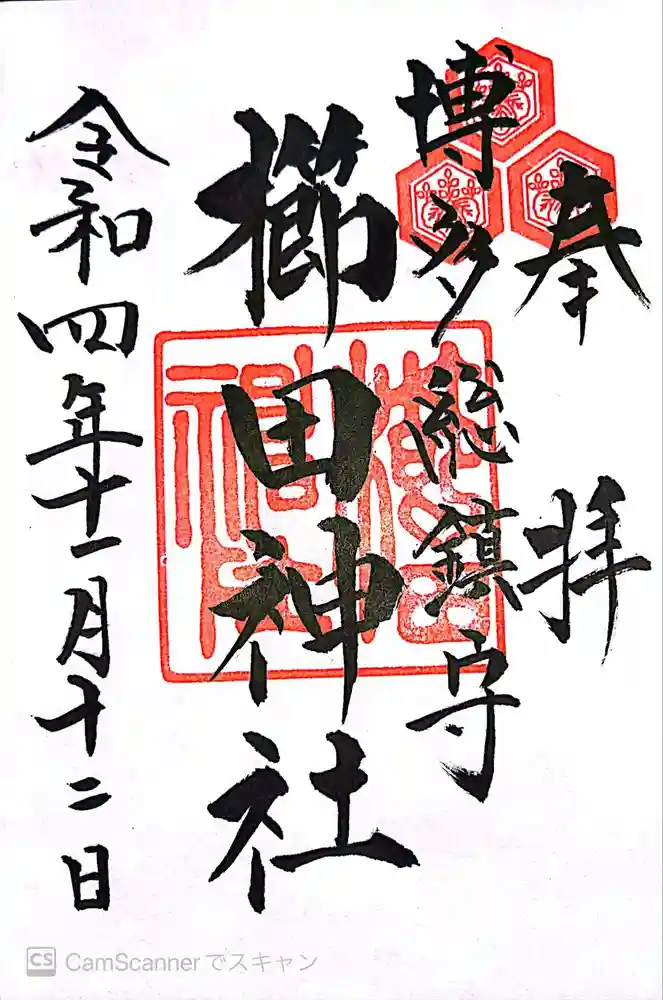 奉拝
博多総鎮守
櫛田神社
令和四年十一月十二日
櫛田神社
CS CamScannerでスキャン